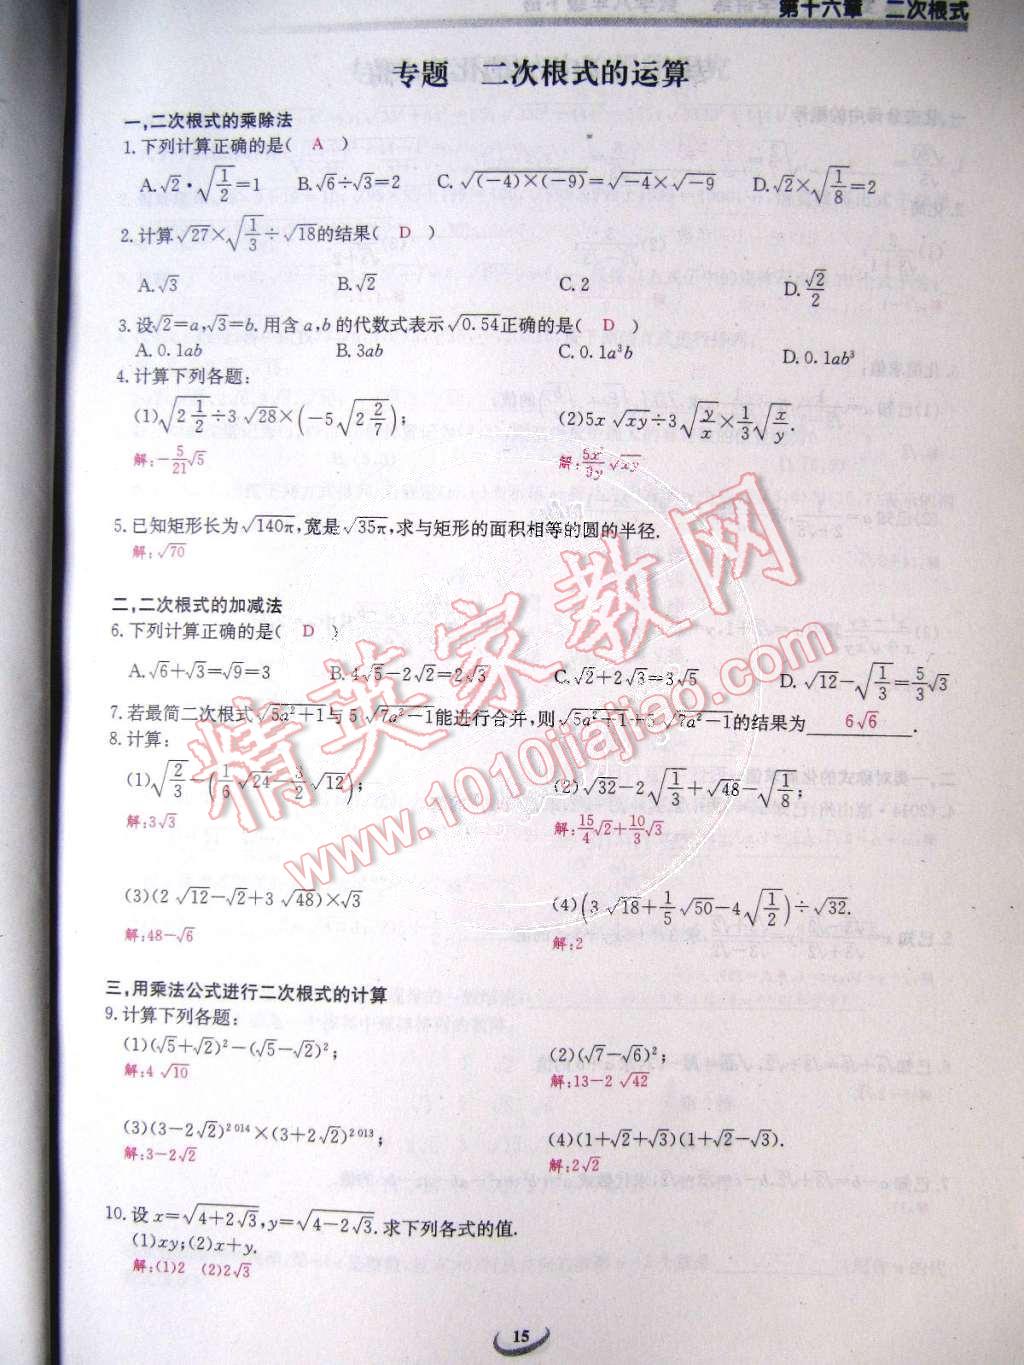 第十六章 二次根式
专题 二次根式的运算
一,二次根式的乘除法
1.下列计算正确的是( A )
A.√2·√(1/2)=1 B.√6÷√3=2 C.√((-4)×(-9))=√-4×√-9 D.√2×√(1/8)=2
2.计算√27×√(1/3)÷√18的结果( D )
A.√3 B.√2 C.2 D.√2/2
3.设√2=a,√3=b.用含a,b的代数式表示√0.54正确的是( D )
A.0.1ab B.3ab C.0.1a³b D.0.1ab³
4.计算下列各题:
(1)√(2 1/2)÷3√28×(-5√(2 2/7)); (2)5x√xy÷3√(y/x)×1/3√(x/y).
解:-5/21√5 解:5x²/9y√xy
5.已知矩形长为√140π,宽是√35π,求与矩形的面积相等的圆的半径.
解:√70
二,二次根式的加减法
6.下列计算正确的是( D )
A.√6+√3=√9=3 B.4√5-2√2=2√3 C.√2+2√3=3√5 D.√12-√(1/3)=5/3√3
7.若最简二次根式√(5a²+1)与5√(7a²-1)能进行合并,则√(5a²+1)+5√(7a²-1)的结果为 6√6 .
8.计算:
(1)√(2/3)-(1/6√24-3/2√12); (2)√32-2√(1/3)+√48-√(1/8);
解:3√3 解:15/4√2+10/3√3
(3)(2√12-√2+3√48)×√3 (4)(3√18+1/5√50-4√(1/2))÷√32.
解:48-√6 解:2
三,用乘法公式进行二次根式的计算
9.计算下列各题:
(1)(√5+√2)²-(√5-√2)²; (2)(√7-√6)²;
解:4√10 解:13-2√42
(3)(3-2√2)²⁰¹⁴×(3+2√2)²⁰¹³; (4)(1+√2+√3)(1+√2-√3).
解:3-2√2 解:2√2
10.设x=√(4+2√3),y=√(4-2√3).求下列各式的值.
(1)xy;(2)x+y.
解:(1)2 (2)2√3
15
精英家教网
www.1010jiajiao.com